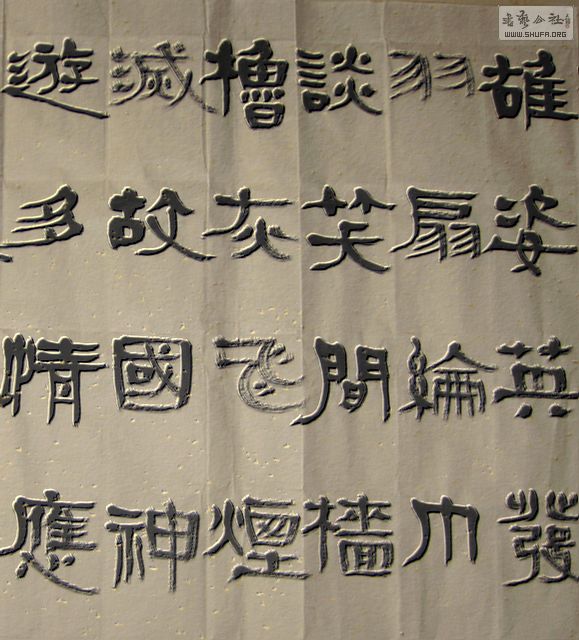 雄姿英發
羽扇綸巾
談笑間檣
櫓灰飞煙
滅故國神
遊多情應
書藝公社
WWW.SHUFA.ORG